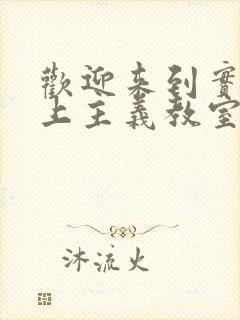 歡迎來到實
上主義教室
沐流火